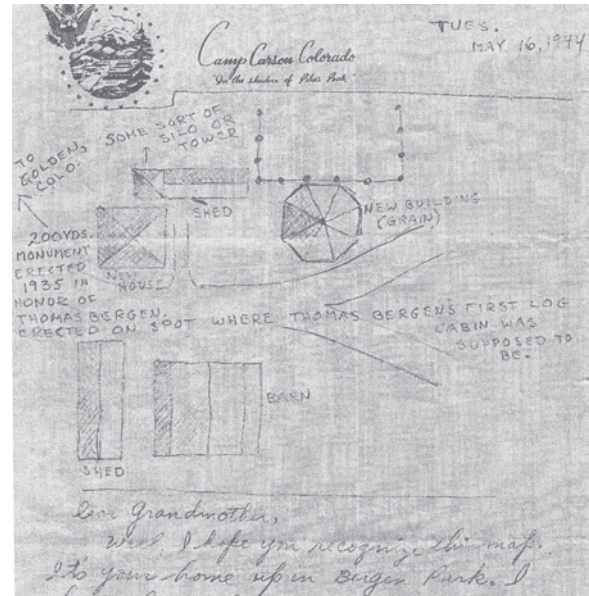 TUES.
MAY 16, 1944
Camp Carson Colorado
"In the shadow of Pikes Peak"
SOME SORT OF
SILO OR
TOWER
TO
GOLDEN,
COLO.
SHED
NEW BUILDING
(GRAIN)
200 YDS.
MONUMENT
ERECTED
1935 IN
HONOR OF
THOMAS BERGEN.
ERECTED ON SPOT WHERE THOMAS BERGEN'S FIRST LOG
CABIN WAS
SUPPOSED TO
BE.
NEW
HOUSE
BARN
SHED
Dear Grandmother,
Well, I hope you recognize this map.
It's your home up in Bergen Park. I